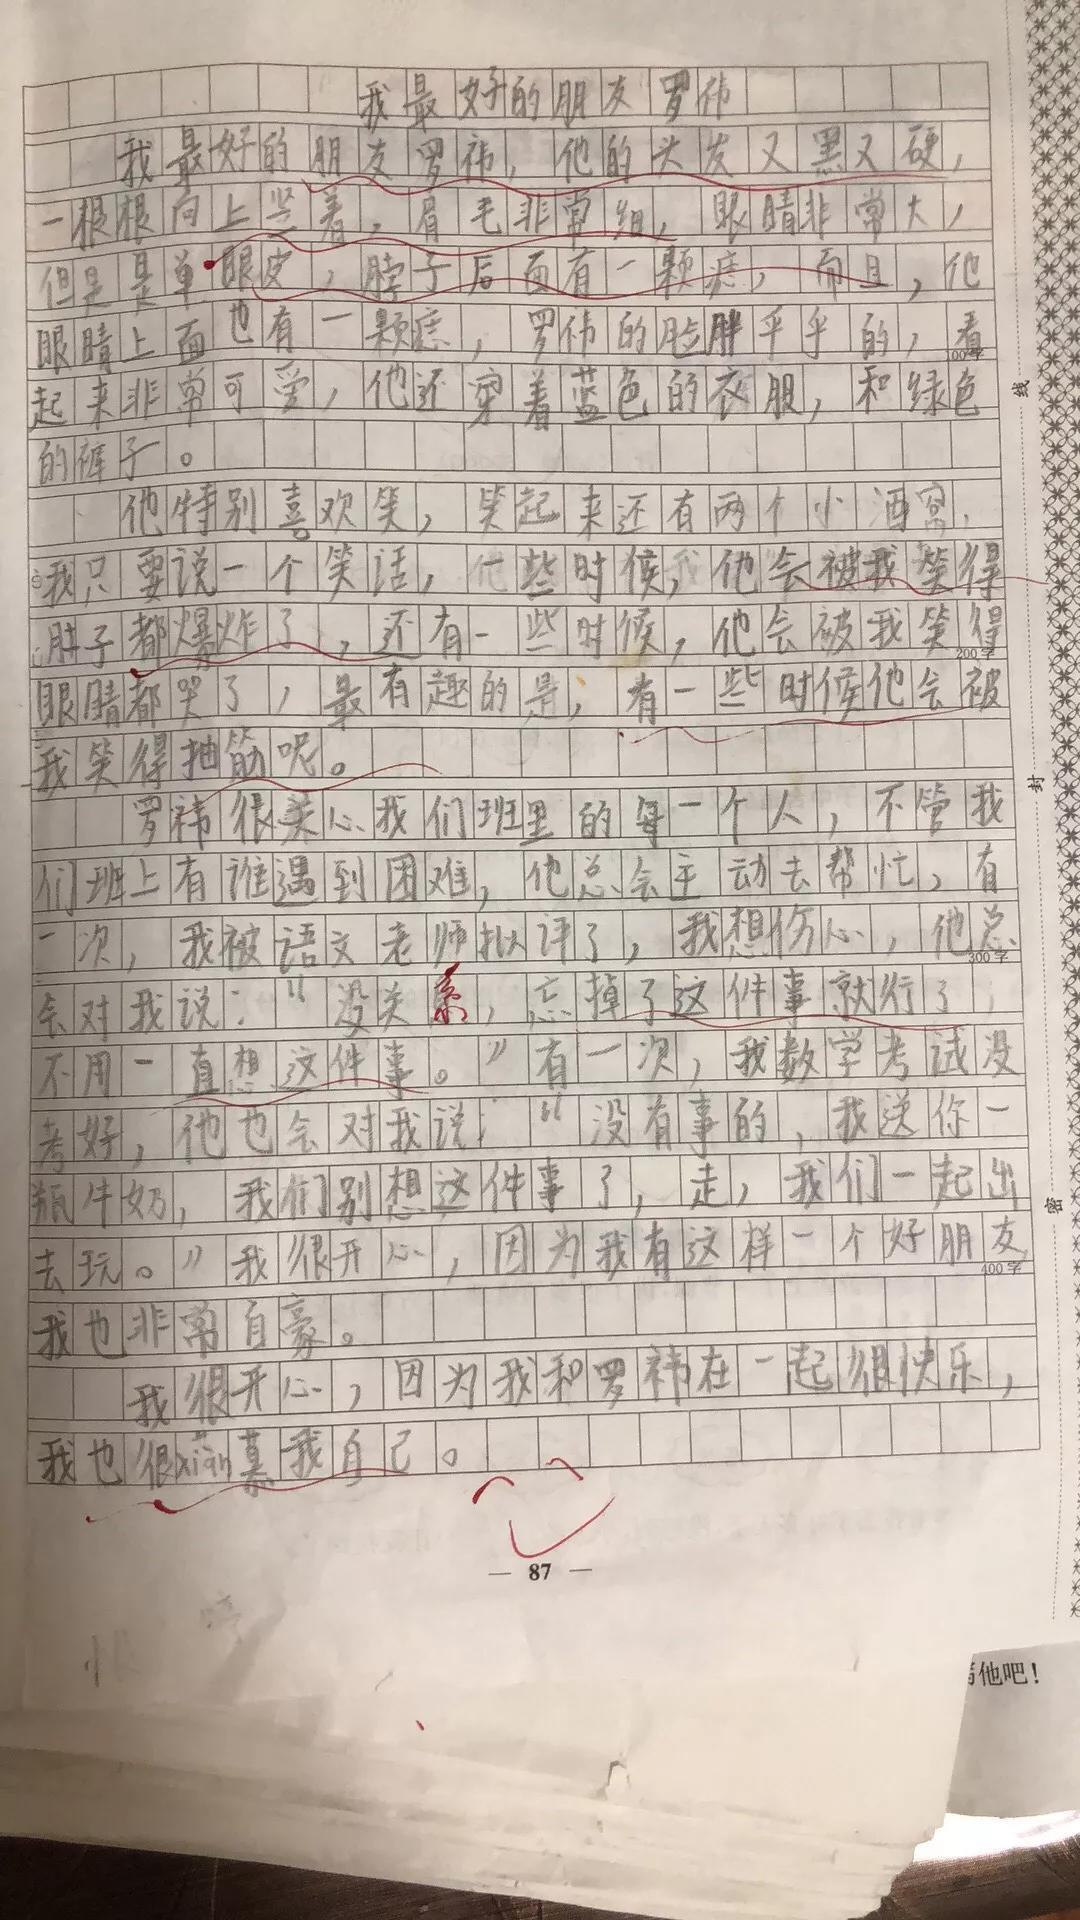 我最好的朋友罗祎
我最好的朋友罗祎，他的头发又黑又硬，
一根根向上竖着，眉毛非常细，眼睛非常大，
但是是单眼皮，脖子后面有一颗痣，而且，他
眼睛上面也有一颗痣，罗祎的脸胖乎乎的，看
100字
起来非常可爱，他还穿着蓝色的衣服，和绿色
的裤子。
他特别喜欢笑，笑起来还有两个小酒窝，
我只要说一个笑话，一些时候，他会被我笑得
肚子都爆炸了，还有一些时候，他会被我笑得
200字
眼睛都哭了，最有趣的是，有一些时候他会被
我笑得抽筋呢。
罗祎很关心我们班里的每一个人，不管我
们班上有谁遇到困难，他总会主动去帮忙，有
一次，我被语文老师批评了，我想伤心，他总
300字
会对我说：“没关系，忘掉了这件事就行了，
不用一直想这件事。”有一次，我数学考试没
考好，他也会对我说：“没有事的，我送你一
瓶牛奶，我们别想这件事了，走，我们一起出
去玩。”我很开心，因为我有这样一个好朋友
400字
我也非常自豪。
我很开心，因为我和罗祎在一起很快乐，
我也很xiàn慕我自己。
87
线
封
密
他吧！